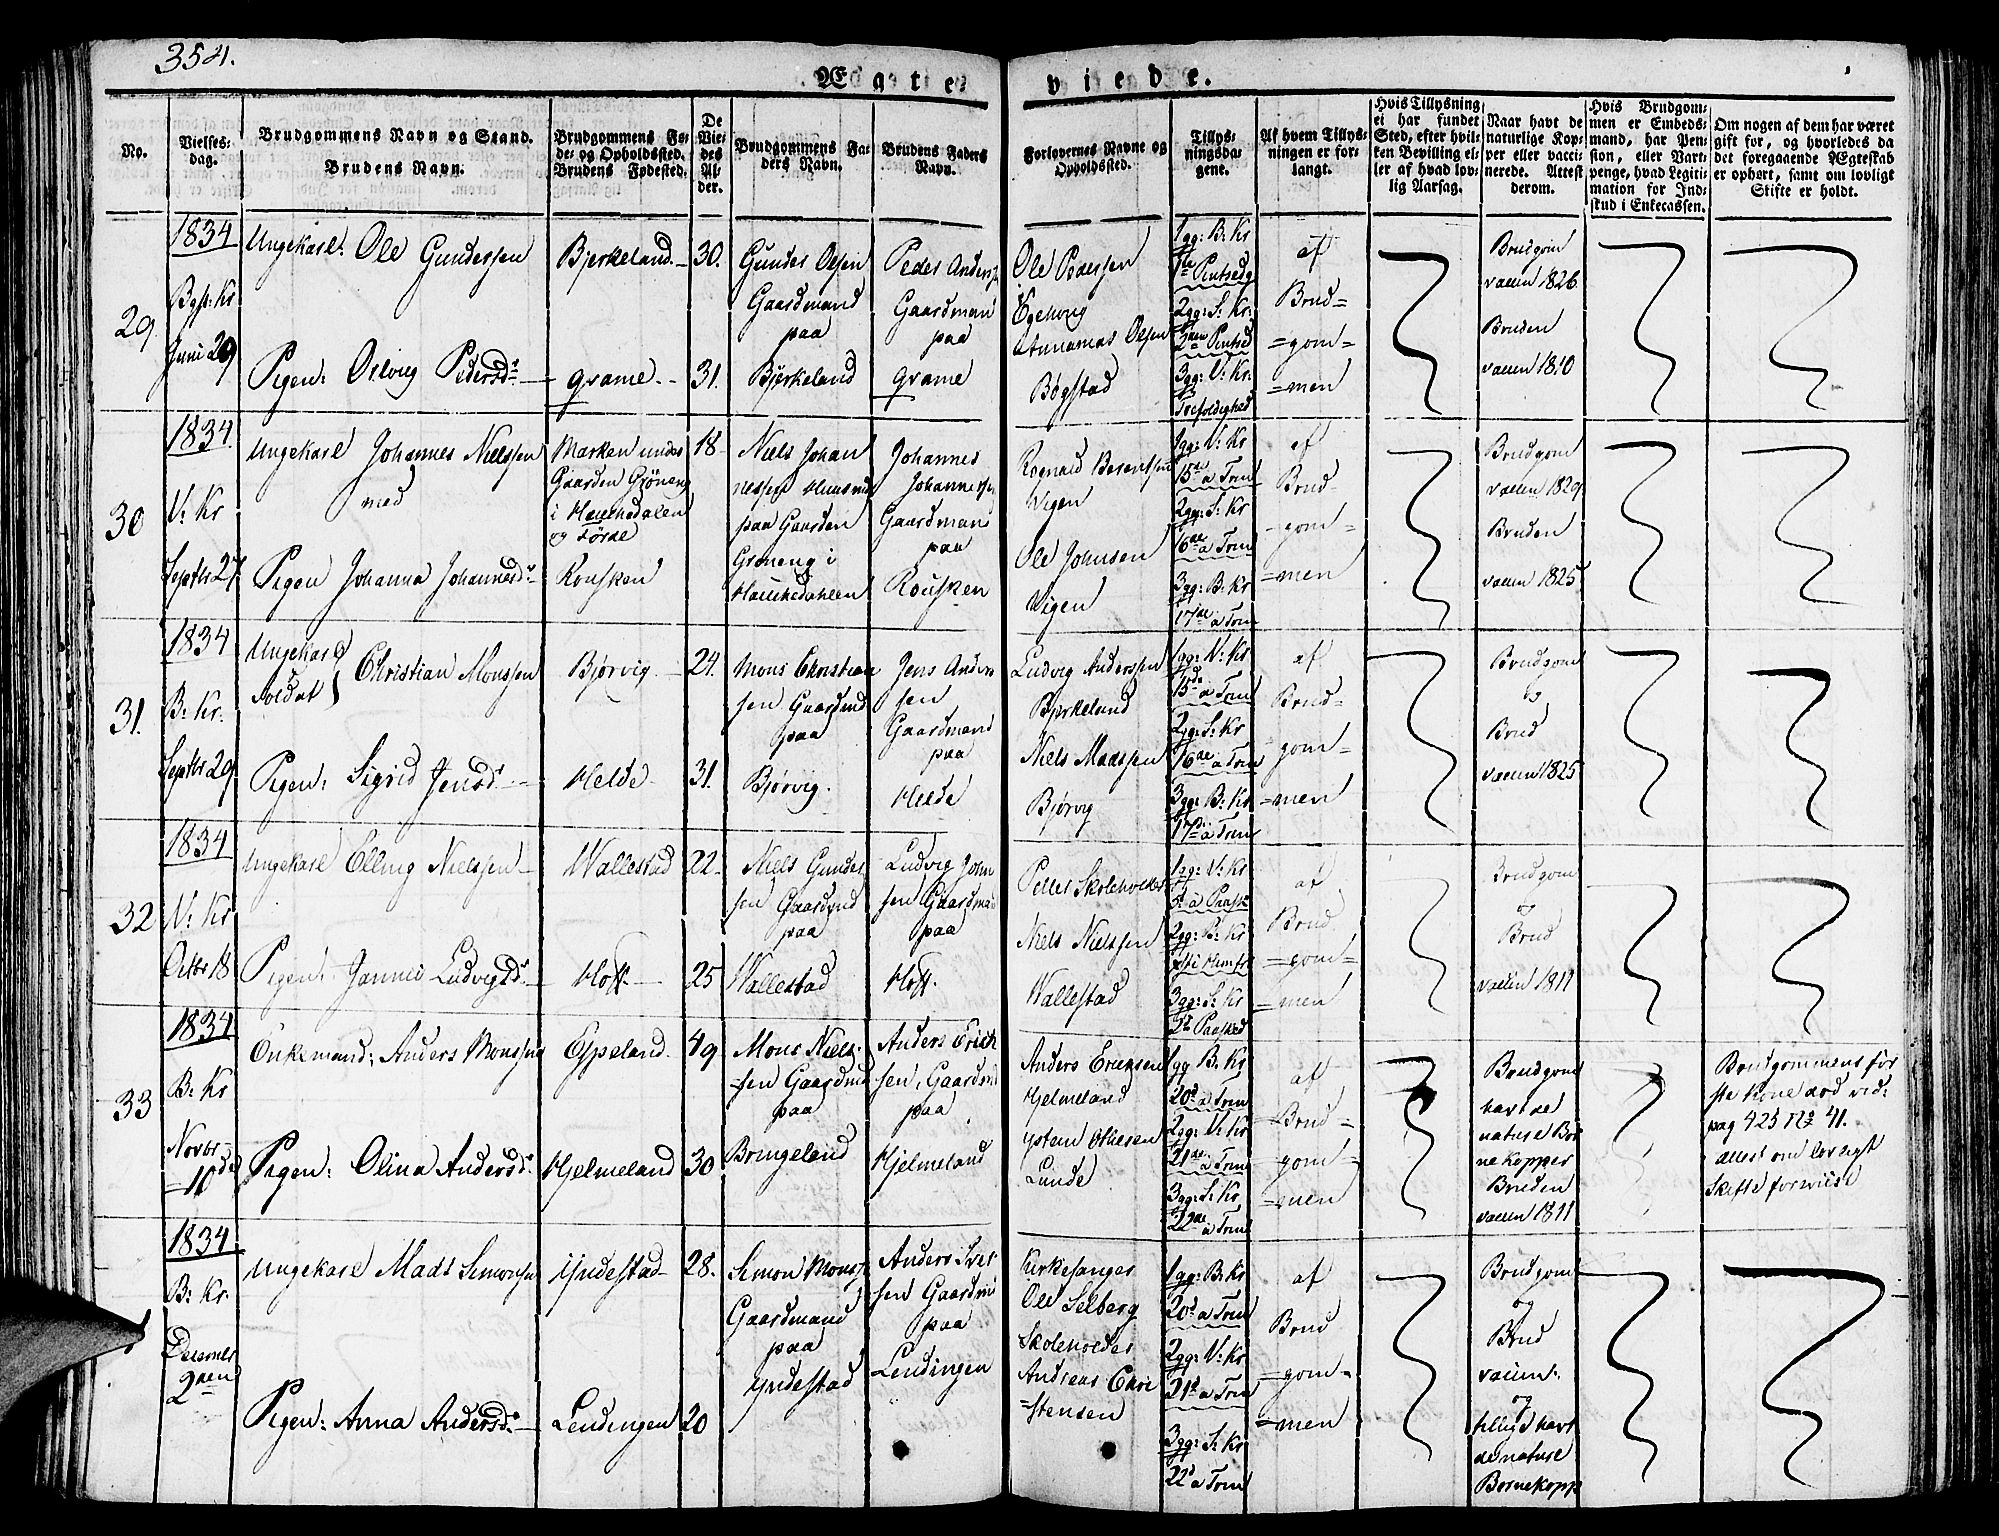 354.
Ægte
viede.
No.
Vielses-
dag.
Brudgommens Navn og Stand.
Brudens Navn.
Brudgommens Fø-
de- og Opholdssted.
Brudens Fødested.
De
Vie-
des
Al-
der.
Brudgommens Fa-
ders Navn.
Brudens Faders
Navn.
Forlovernes Navne og
Opholdssted.
Tillys-
ningsda-
gene.
Af hvem Tillys-
ningen er for-
langt.
Hvis Tillysning
ei har fundet
Sted, efter hvil-
ken Bevilling el-
ler af hvad lov-
lig Aarsag.
Naar havt de
naturlige Kop-
per eller vacci-
nerede. Attest
derom.
Hvis Brudgom-
men er Embeds-
mand, har Pen-
sion, eller Vart-
penge, hvad Legiti-
mation for Ind-
skud i Enkecassen.
Om nogen af dem har været
gift før, og hvorledes da
det foregaaende Ægteskab
er ophørt, samt om lovligt
Skifte er holdt.
29
1834
Kr
Juni 29
Ungekarl: Ole Gundersen
Pigen: Pedersd:
Bjerkeland
Grame
30.
31.
Gunder Olsen
Gaardmand
paa
Bjerkeland
Peder Anders
Gaardmand
paa
Grame
Ole Pedersen
Olsen
Bøgstad
1gg: B: Kr
1te Pintsedg
2gg: S: Kr:
2den Pintsed
3gg: V: Kr:
Trefoldighed
af
Brud=
=gom=
=men
Brudgom
vacin 1826
Bruden
vacin 1810
30
1834
V: Kr
Septbr 27
Ungekarl Johannes Nielssen
med
Pigen Johanna Johannesd:
Marken under
Gaarden Grøneng
i Haukedalen
og Førde
Rousken
18
Niels Johan
nessen Huusmd
paa Gaarden
Grøneng i
Haukedahlen
Johannes
Johannessen
Gaardmand
paa
Rousken
Rognald Berentsen
Vigen
Ole Johnsen
Vigen
1gg: V: Kr
15de a Trin
2gg: S: Kr
16de a Trin
3gg: B: Kr
17de a Trin
af
Brud-
-gom-
=men
Brudgom
vacin 1829
Bruden
vacin 1825
31.
1834
B: Kr.
Septbr 29
Ungekarl
Soldat } Christian Monssen
Pigen: Sigrid Jensd:
Bjørvig
Helde
24.
31.
Mons Christian
sen Gaardmd
paa
Bjørvig.
Jens Ander
sen
Gaardmand
paa
Helde
Ludvig Anderssen
Bjerkeland
Niels Madssen
Bjørvig
1gg: V: Kr
15de a Trin
2gg: S: Kr
16de a Trin
3gg: B: Kr
17de a Trin
af
Brud-
gom-
=men
Brudgom
og
Brud
vacin 1825
32
1834
V: Kr
Octbr 18
Ungekarl Elling Nielssen
Pigen: Ludvigsd:
Wallestad
Hoff
22
25
Niels Gunder
sen Gaardmd
paa
Wallestad
Ludvig John
sen Gaardman
paa
Hoff.
Peder Skoleholder
Niels Nielssen
Wallestad
1gg: V: Kr
5te a Paaske
2gg: B: Kr
3gg: S: Kr
2den Paasked
af
Brud
=gom=
=men
Brudgom
og
Brud
vacin 1811
33
1834
B: Kr
Novbr
=10de
Enkemand: Anders Monssen
Pigen: Olina Andersd:
Espeland
Hjelmeland
49
30
Mons Niels-
sen Gaardmd
paa
Bringeland
Anders Erich
sen, Gaardmd
paa
Hjelmeland
Anders Ericksen
Hjelmeland
Ystein
Lunde
1gg B: Kr
20de a Trin
2gg: V: Kr
21de a Trin
3gg: S: Kr
22de a Trin
af
=Brud=
gom=
=men
Brudgom
havt de
nature Bør
nekopper
Bruden
vacin 1811
Brudgommens før
ste Kone død vid:
pag 425 No 41.
Attest om lovligt
Skifte forviist
1834
B: Kr.
Decembr
2den
Ungekarl Mads Simonsen
Pigen: Anna Andersd:
Yndestad
Lendingen
28.
20
Simon Monss
Gaardmand
paa
Yndestad
Anders Iver
sen Gaardmd
paa
Lendingen
Kirkesanger
Ole Selberg
Skoleholder
Andreas Chri
=stensen
1gg: B: Kr
20de a Trin
2gg: V: Kr
21de a Trin
3gg: S: Kr
22de a Trin
af
Brud
=gom=
=men
Brudgom
og
Brud
vacin:
og
tillige havt
de nature
Børnekopp